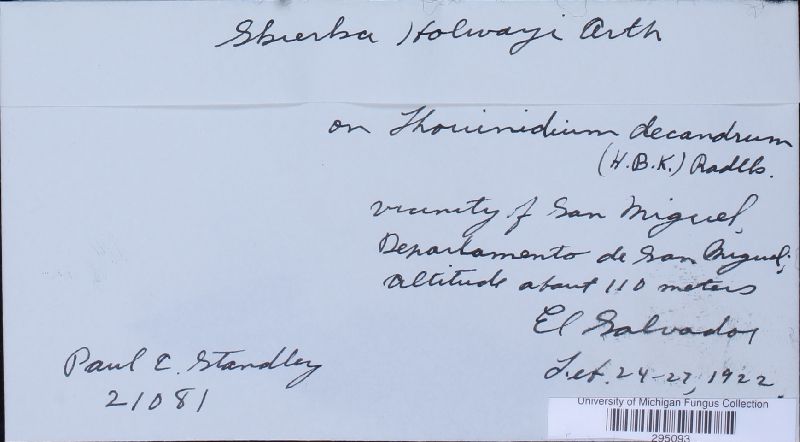 Sbierba Holwayi Arth
on Thouinidium decandrum
(H.B.K.) Radlk.
vicinity of San Miguel,
Departamento de San Miguel;
altitude about 110 meters
El Salvador
Feb. 24-27, 1922.
Paul C. Standley
21081
University of Michigan Fungus Collection
295093